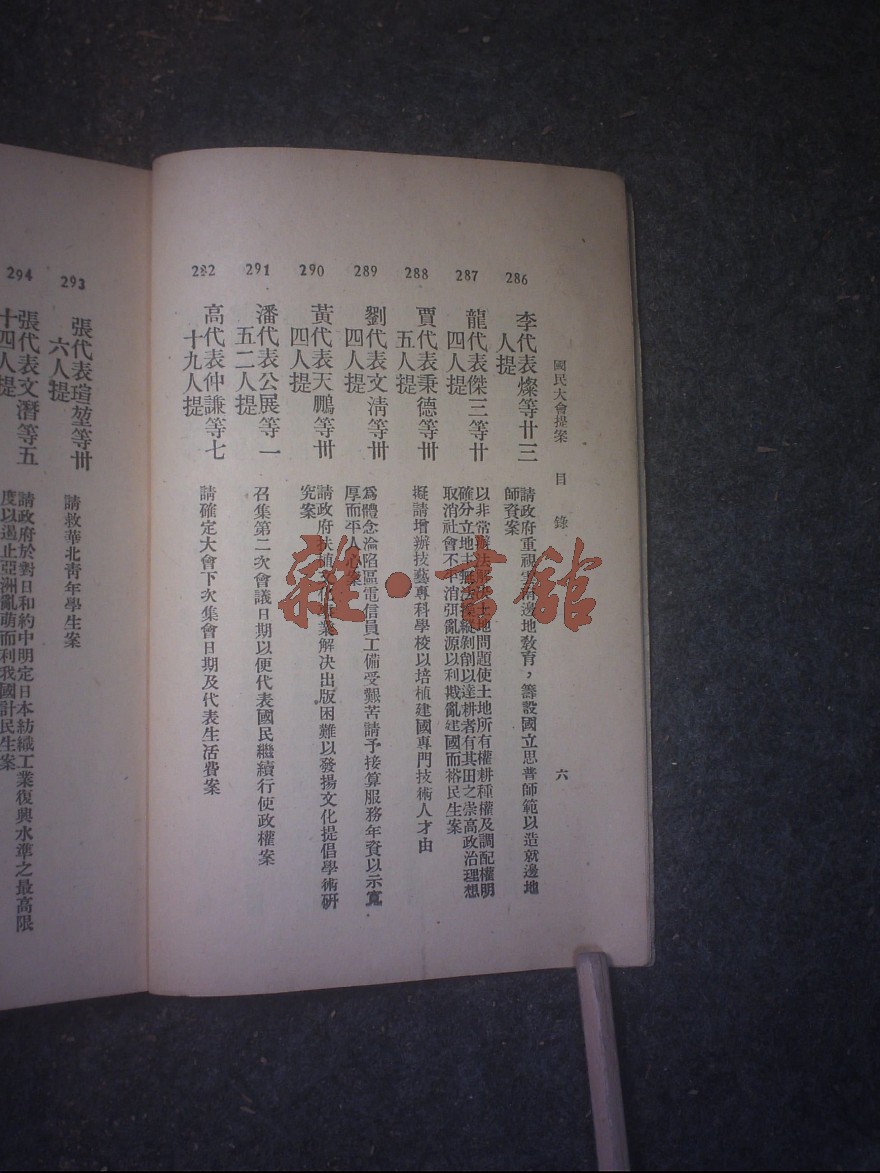 國民大會提案　目　錄　六
286
李代表燦等廿三
人提
請政府重視雲南邊地教育，籌設國立思普師範以造就邊地
師資案
287
龍代表傑三等廿
四人提
以非常辦法解決土地問題使土地所有權耕種權及調配權明
確分立地主無法操縱剝削以達耕者有其田之崇高政治理想
取消社會不平消弭亂源以利戡亂建國而裕民生案
288
賈代表秉德等卅
五人提
擬請增辦技藝專科學校以培植建國專門技術人才由
289
劉代表文清等卅
四人提
為體念淪陷區電信員工備受艱苦請予接算服務年資以示寬
厚而平人心案
290
黃代表天鵬等卅
四人提
請政府扶植文化事業解決出版困難以發揚文化提倡學術研
究案
291
潘代表公展等一
五二人提
召集第二次會議日期以便代表國民繼續行使政權案
282
高代表仲謙等七
十九人提
請確定大會下次集會日期及代表生活費案
293
張代表瑄堃等卅
六人提
請救華北青年學生案
294
張代表文潛等五
十四人提
請政府於對日和約中明定日本紡織工業復興水準之最高限
度以遏止亞洲亂萌而利我國計民生案
雜·書館